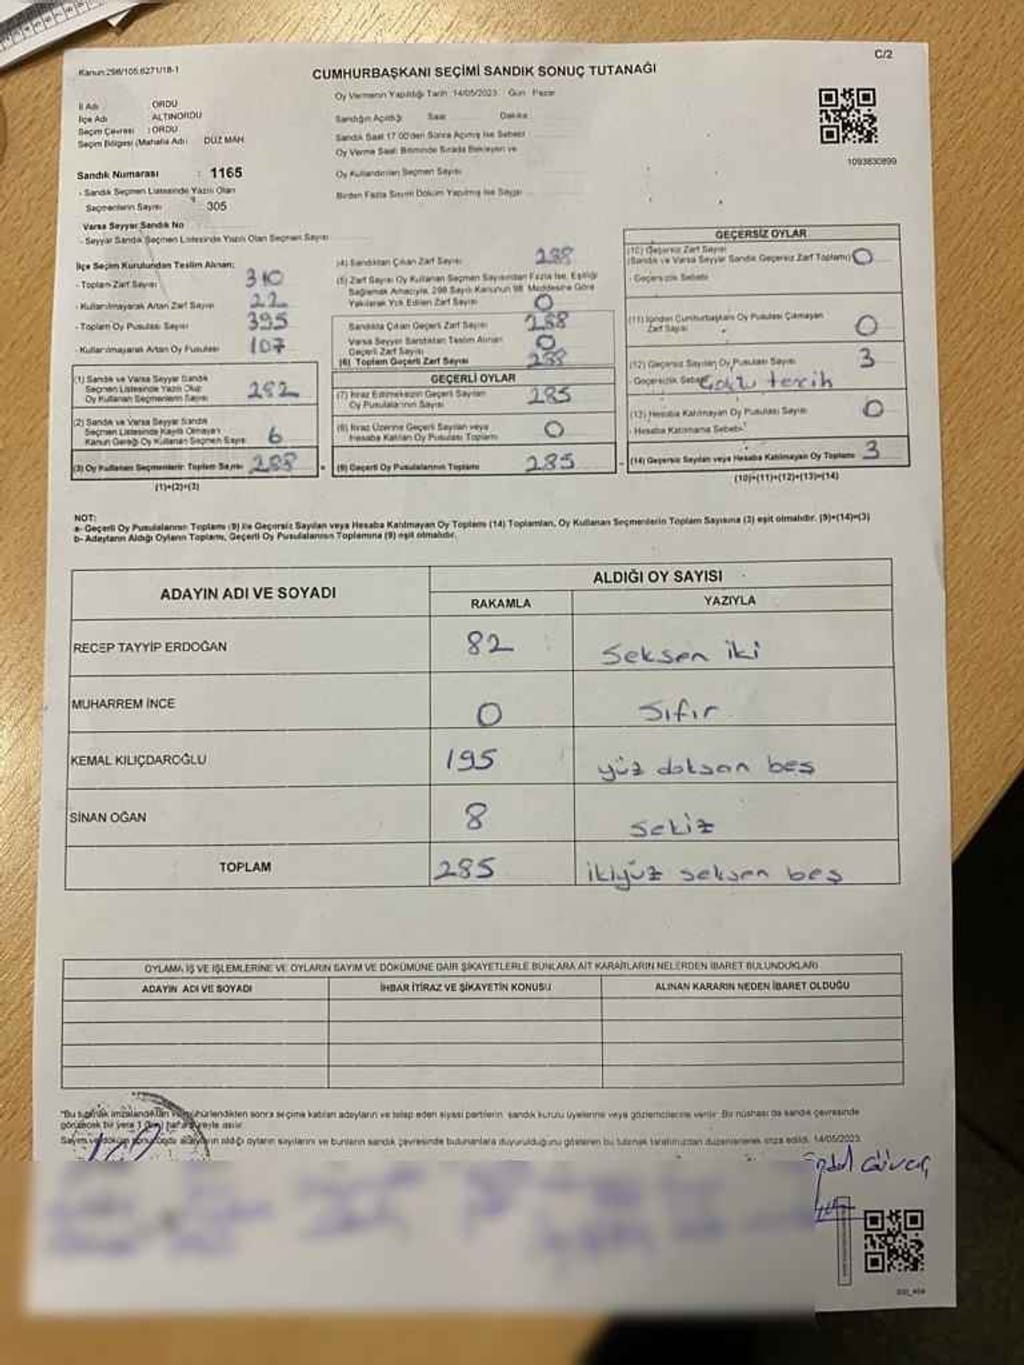 C/2
Kanun:298/105.6271/18-1
CUMHURBAŞKANI SEÇİMİ SANDIK SONUÇ TUTANAĞI
İl Adı ORDU
İlçe Adı ALTINORDU
Seçim Çevresi : ORDU
Seçim Bölgesi (Mahalle Adı) DÜZ MAH
Sandık Numarası : 1165
- Sandık Seçmen Listesinde Yazılı Olan
Seçmenlerin Sayısı 305
Varsa Seyyar Sandık No
- Seyyar Sandık Seçmen Listesinde Yazılı Olan Seçmen Sayısı
Oy Vermenin Yapıldığı Tarih 14/05/2023 Gün Pazar
Sandığın Açıldığı Saat Dakika
Sandık Saat 17.00'den Sonra Açılmış İse Sebebi
Oy Verme Saati Bitiminde Sırada Bekleyen ve
Oy Kullandırılan Seçmen Sayısı
Birden Fazla Sayım Döküm Yapılmış İse Sayısı
1093830899
İlçe Seçim Kurulundan Teslim Alınan;
- Toplam Zarf Sayısı 310
- Kullanılmayarak Artan Zarf Sayısı 22
- Toplam Oy Pusulası Sayısı 395
- Kullanılmayarak Artan Oy Pusulası 107
(1) Sandık ve Varsa Seyyar Sandık
Seçmen Listesinde Yazılı Olup
Oy Kullanan Seçmenlerin Sayısı 282
(2) Sandık ve Varsa Seyyar Sandık
Seçmen Listesinde Kayıtlı Olmayan
Kanun Gereği Oy Kullanan Seçmen Sayısı 6
(3) Oy Kullanan Seçmenlerin Toplam Sayısı 288
(1)+(2)=(3)
(4) Sandıktan Çıkan Zarf Sayısı 288
(5) Zarf Sayısı Oy Kullanan Seçmen Sayısından Fazla İse, Eşitliği
Sağlamak Amacıyla, 298 Sayılı Kanunun 98. Maddesine Göre
Yakılarak Yok Edilen Zarf Sayısı 0
Sandıkta Çıkan Geçerli Zarf Sayısı 288
Varsa Seyyar Sandıktan Teslim Alınan
Geçerli Zarf Sayısı 0
(6) Toplam Geçerli Zarf Sayısı 288
GEÇERLİ OYLAR
(7) İtiraz Edilmeksizin Geçerli Sayılan
Oy Pusulalarının Sayısı 285
(8) İtiraz Üzerine Geçerli Sayılan veya
Hesaba Katılan Oy Pusulası Toplamı 0
(9) Geçerli Oy Pusulalarının Toplamı 285
GEÇERSİZ OYLAR
(10) Geçersiz Zarf Sayısı
(Sandık ve Varsa Seyyar Sandık Geçersiz Zarf Toplamı) 0
- Geçersizlik Sebebi
(11) İçinden Cumhurbaşkanı Oy Pusulası Çıkmayan
Zarf Sayısı 0
(12) Geçersiz Sayılan Oy Pusulası Sayısı 3
- Geçersizlik Sebebi Çoklu tercih
(13) Hesaba Katılmayan Oy Pusulası Sayısı 0
- Hesaba Katılmama Sebebi
(14) Geçersiz Sayılan veya Hesaba Katılmayan Oy Toplamı 3
(10)+(11)+(12)+(13)=(14)
NOT:
a- Geçerli Oy Pusulalarının Toplamı (9) ile Geçersiz Sayılan veya Hesaba Katılmayan Oy Toplamı (14) Toplamları, Oy Kullanan Seçmenlerin Toplam Sayısına (3) eşit olmalıdır. (9)+(14)=(3)
b- Adayların Aldığı Oyların Toplamı, Geçerli Oy Pusulalarının Toplamına (9) eşit olmalıdır.
ADAYIN ADI VE SOYADI ALDIĞI OY SAYISI
RAKAMLA YAZIYLA
RECEP TAYYİP ERDOĞAN 82 Seksen iki
MUHARREM İNCE 0 Sıfır
KEMAL KILIÇDAROĞLU 195 yüz doksan beş
SİNAN OĞAN 8 Sekiz
TOPLAM 285 ikiyüz seksen beş
OYLAMA İŞ VE İŞLEMLERİNE VE OYLARIN SAYIM VE DÖKÜMÜNE DAİR ŞİKAYETLERLE BUNLARA AİT KARARLARIN NELERDEN İBARET BULUNDUKLARI
ADAYIN ADI VE SOYADI İHBAR İTİRAZ VE ŞİKAYETİN KONUSU ALINAN KARARIN NEDEN İBARET OLDUĞU
"Bu tutanak imzalandıktan ve mühürlendikten sonra seçime katılan adayların ve talep eden siyasi partilerin sandık kurulu üyelerine veya gözlemcilerine verilir. Bir nüshası da sandık çevresinde
görülecek bir yere 1 (bir) hafta süreyle asılır.
Sayım ve döküm sonucunda adayların aldığı oyların sayılarını ve bunların sandık çevresinde bulunanlara duyurulduğunu gösteren bu tutanak tarafımızdan düzenlenerek imza edildi. 14/05/2023
Güvenç